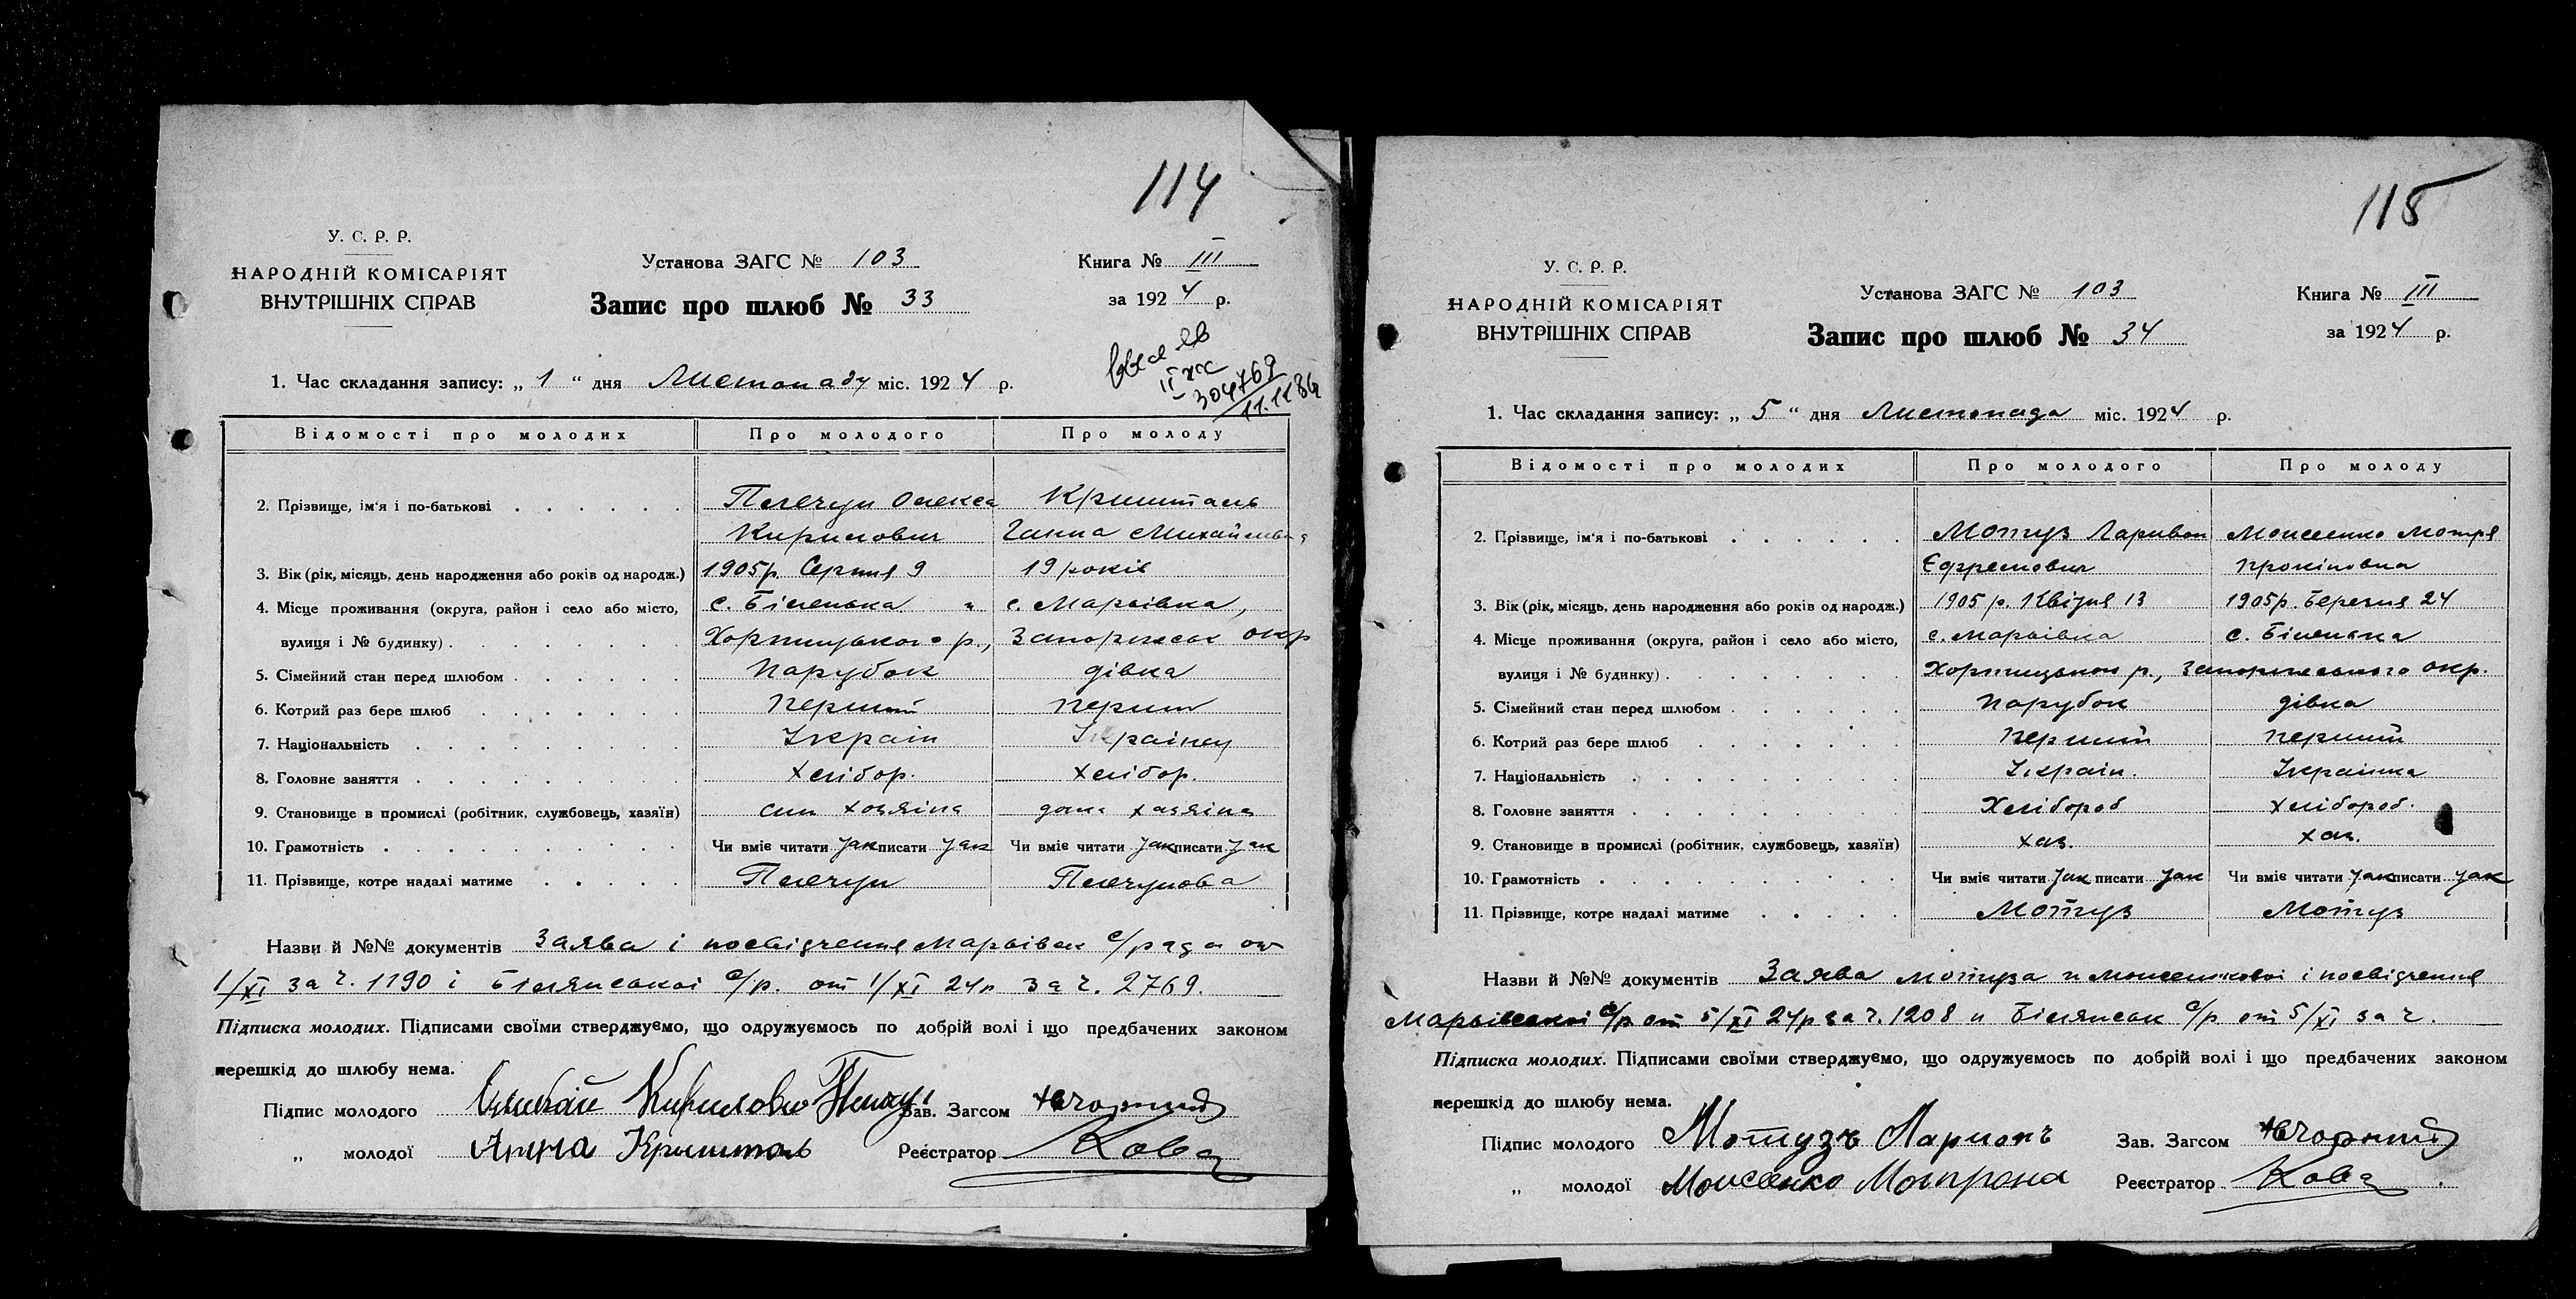 114
У. С. Р. Р.
НАРОДНІЙ КОМІСАРІЯТ
ВНУТРІШНІХ СПРАВ
Установа ЗАГС № 103
Запис про шлюб № 33
Книга № III
за 1924 р.
304769
11.11.86
1. Час складання запису: „ 1 “ дня Листопаду міс. 1924 р.
Відомості про молодих Про молодого Про молоду
2. Прізвище, ім'я і по-батькові Олекса Кришталь
Кирилович Ганна Михайлівна
3. Вік (рік, місяць, день народження або років од народж.) 1905р. Серпня 9 19 років
4. Місце проживання (округа, район і село або місто, с. Біленька с. Марьівка,
вулиця і № будинку) Хортицького р., Запорожськ окр
5. Сімейний стан перед шлюбом Парубок дівка
6. Котрий раз бере шлюб перший перший
7. Національність Україн Українц
8. Головне заняття хлібор. хлібор.
9. Становище в промислі (робітник, службовець, хазяїн) син хозяїна хазяїна
10. Грамотність Чи вміє читати так писати так Чи вміє читати так писати так
11. Прізвище, котре надалі матиме
Назви й №№ документів Заява і посвідчення Марьівск с/рада от
1/XI за ч. 1190 і Білянської с/р. от 1/XI 24р за ч. 2769.
Підписка молодих. Підписами своїми стверджуємо, що одружуємось по добрій волі і що предбачених законом
перешкід до шлюбу нема.
Підпис молодого Кирилович Зав. Загсом
„ молодої Анна Кришталь Реєстратор
115
У. С. Р. Р.
НАРОДНІЙ КОМІСАРІЯТ
ВНУТРІШНІХ СПРАВ
Установа ЗАГС № 103
Запис про шлюб № 34
Книга № III
за 1924 р.
1. Час складання запису: „ 5 “ дня Листопада міс. 1924 р.
Відомості про молодих Про молодого Про молоду
2. Прізвище, ім'я і по-батькові Мотуз Ларивон Моисеенко Мотря
Єфремович Прокіповна
3. Вік (рік, місяць, день народження або років од народж.) 1905 р. Квітня 13 1905р. Березня 24
4. Місце проживання (округа, район і село або місто, с. Марьівка с. Біленька
вулиця і № будинку) Хортицького р., Запорожського окр.
5. Сімейний стан перед шлюбом Парубок дівка
6. Котрий раз бере шлюб перший перший
7. Національність Україн. Українка
8. Головне заняття Хлібороб хлібороб.
9. Становище в промислі (робітник, службовець, хазяїн) хаз. хаз.
10. Грамотність Чи вміє читати так писати так Чи вміє читати так писати так
11. Прізвище, котре надалі матиме Мотуз Мотуз
Назви й №№ документів Заява Мотуза и Моисеенкової і посвідчення
Марьівської с/р от 5/XI 24р за ч. 1208 и Білянськ с/р от 5/XI за ч.
Підписка молодих. Підписами своїми стверджуємо, що одружуємось по добрій волі і що предбачених законом
перешкід до шлюбу нема.
Підпис молодого Мотузъ Ларионъ Зав. Загсом
„ молодої Моисеенко Мотрона Реєстратор